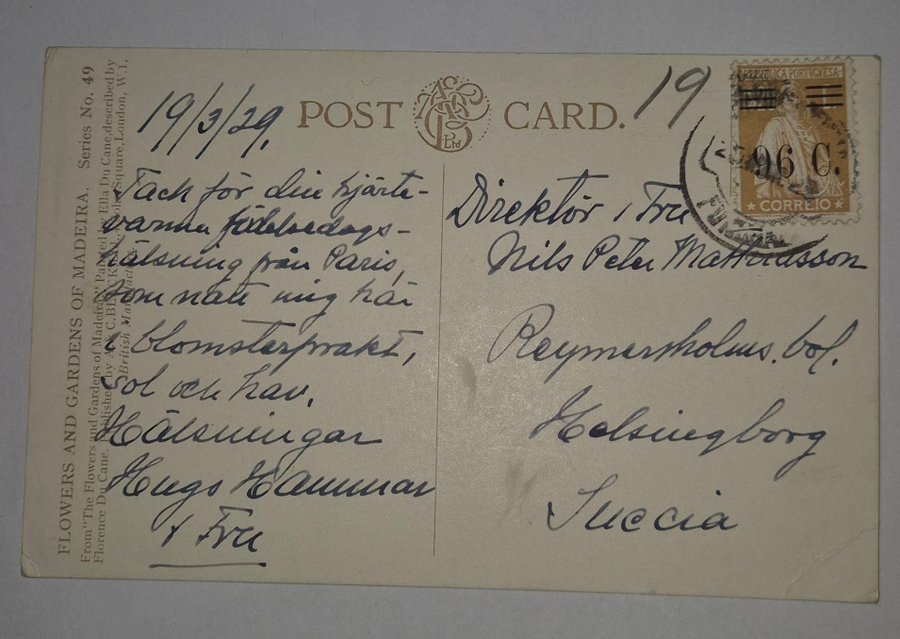 POST CARD.
19/3/29.
Tack för din hjärte-
varma födelsedags-
hälsning från Paris,
som nått mig här
i blomsterprakt,
sol och hav.
Hälsningar
Hugo Hammar
& Fru
19
REPUBLICA PORTUGUESA
96 C.
CORREIO
Direktör & Fru
Nils Peter Mathiasson
Reymersholms. bol.
Helsingborg
Suecia
FLOWERS AND GARDENS OF MADEIRA. Series No. 49
From "The Flowers and Gardens of Madeira." Painted by Ella Du Cane, described by
Florence Du Cane. Published by A. & C. BLACK, Soho Square, London, W.1.
British